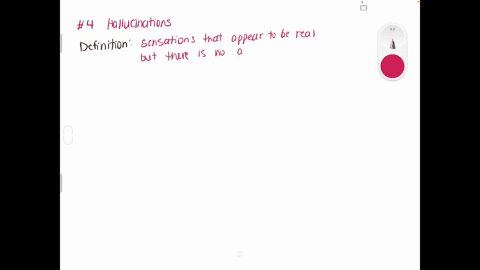 #4 Hallucinations
Definition: sensations that appear to be real
but there is no a